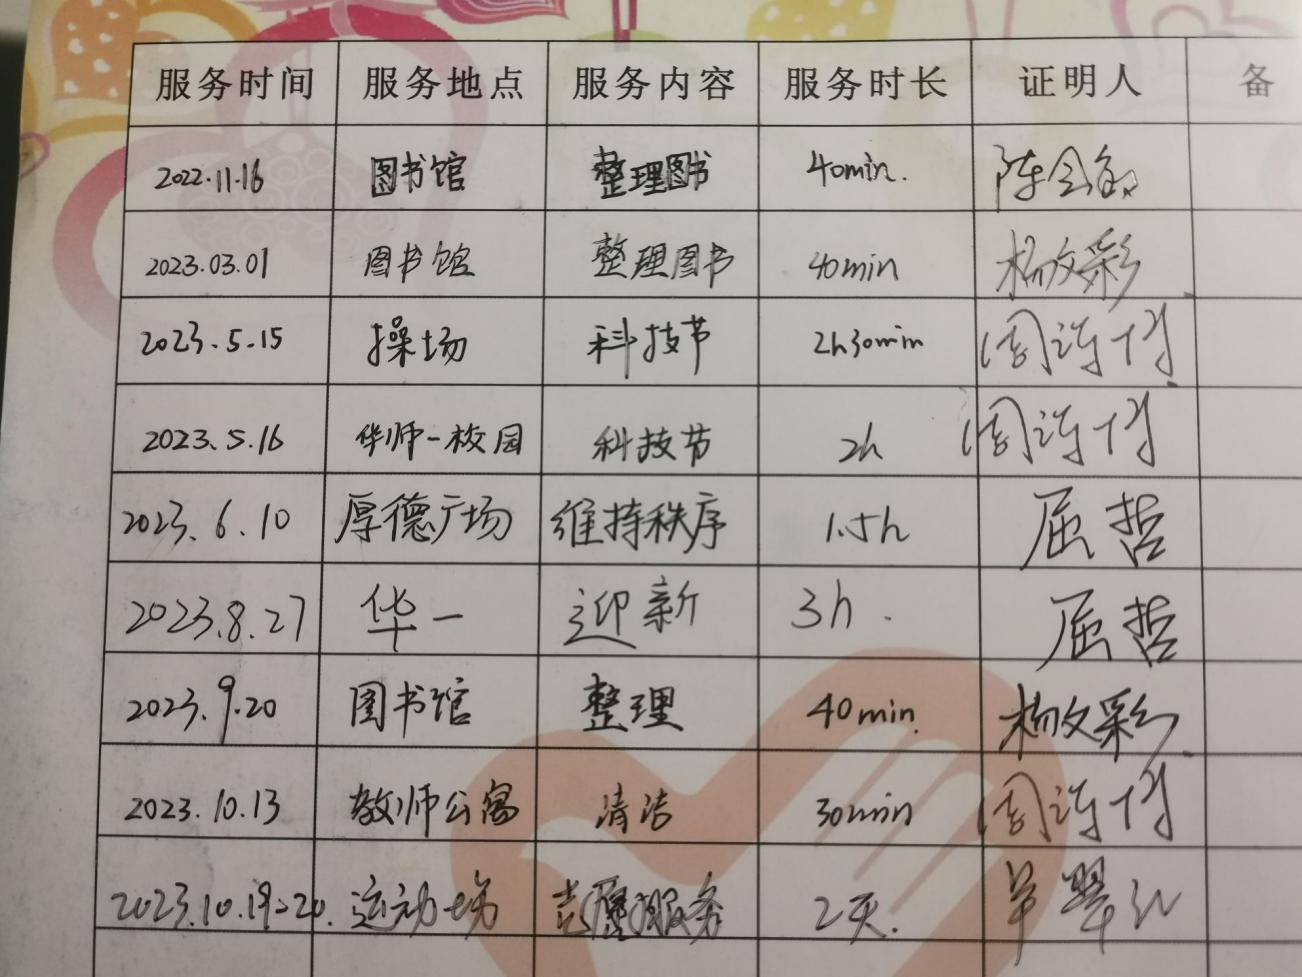 服务时间 服务地点 服务内容 服务时长 证明人 备
2022.11.16 图书馆 整理图书 40min.
2023.03.01 图书馆 整理图书 40min 杨文彩
2023.5.15 操场 科技节 2h30min 周
2023.5.16 华师一校园 科技节 2h 周
2023.6.10 厚德广场 维持秩序 1.5h 屈哲
2023.8.27 华一 迎新 3h. 屈哲
2023.9.20 图书馆 整理 40min. 杨文彩
2023.10.13 教师公寓 清洁 30min 周
2023.10.19~20. 运动场 志愿服务 2天.